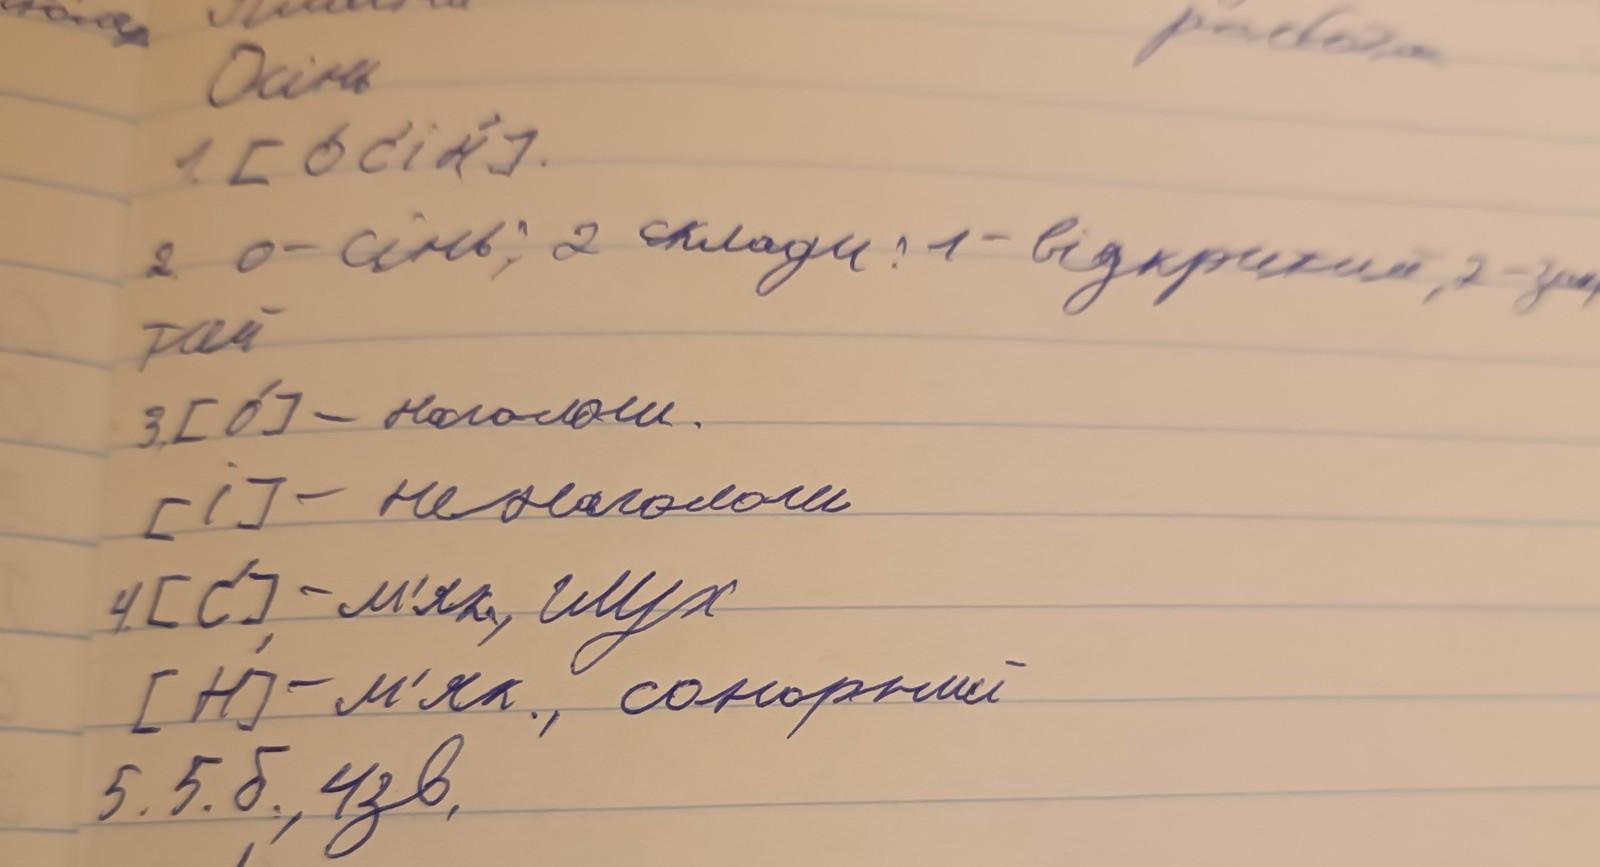 робота
Осінь
1. [о́с'ін'].
2 о-сінь; 2 склади: 1-відкритий, 2-зак
тий
3. [о́] - наголош.
[і] - ненаголош
4. [с'] - м'як., глух
[н'] - м'як., сонорний
5. 5.б., 4зв.